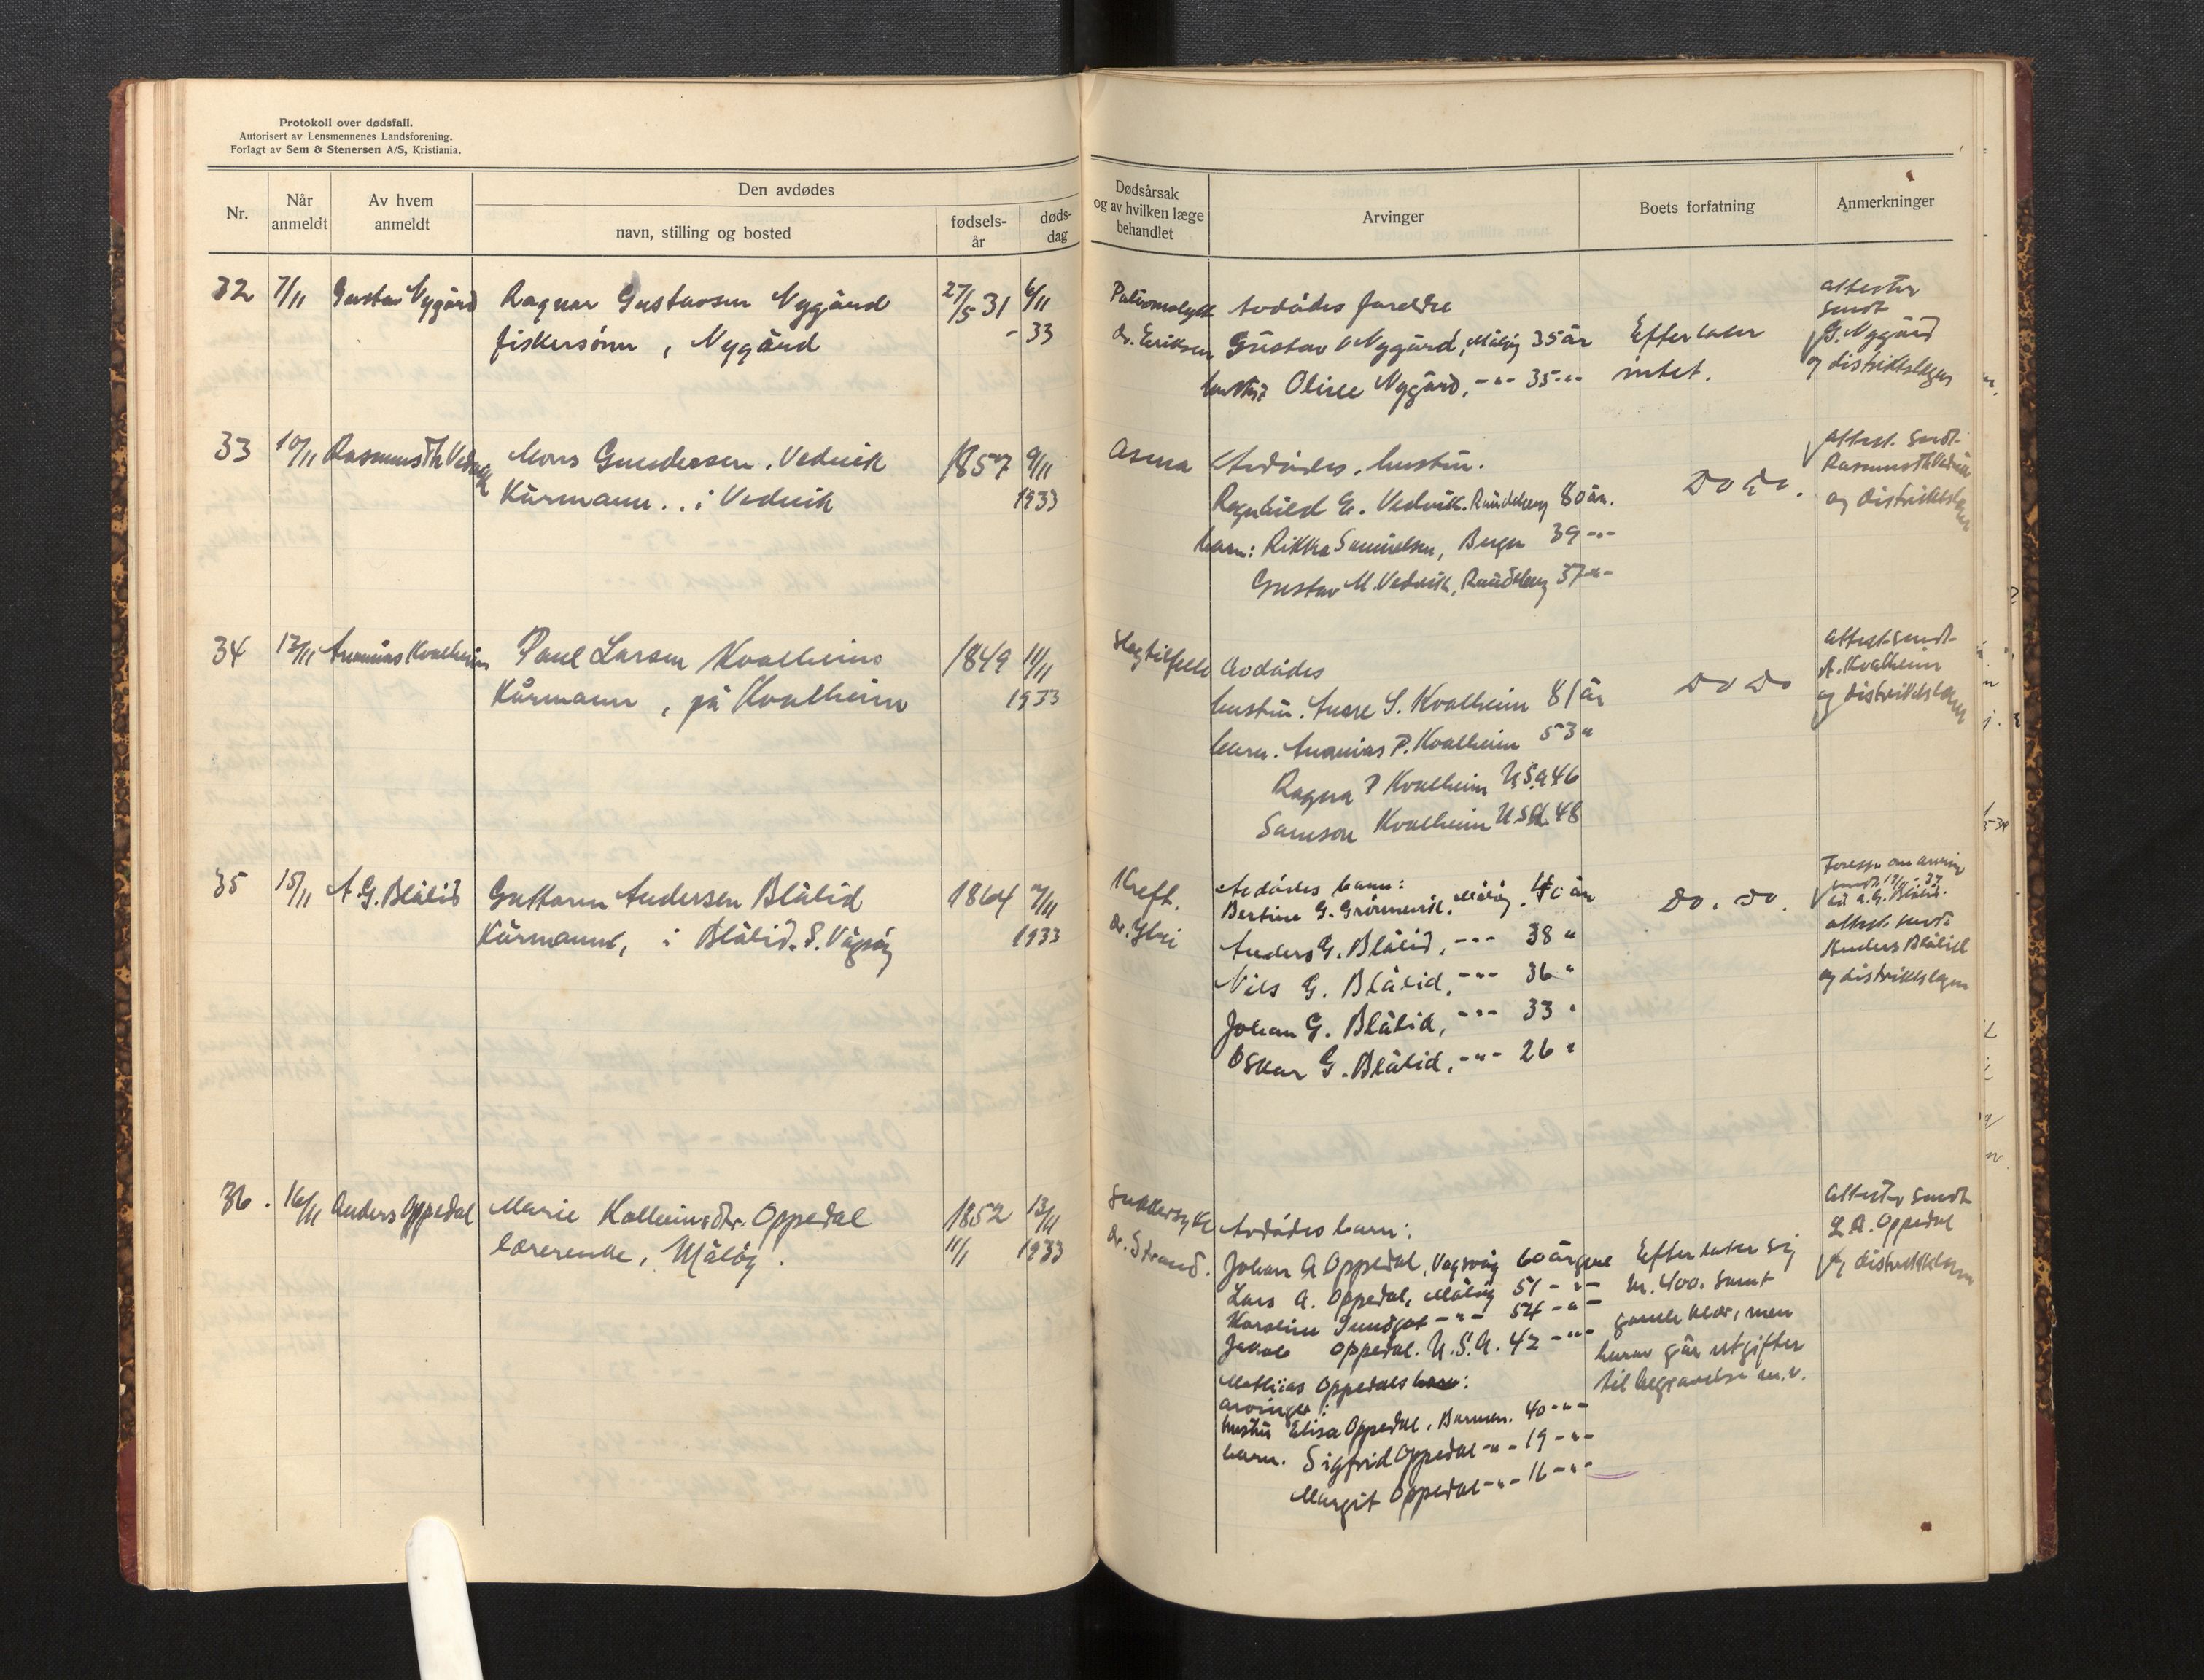 Protokoll over dødsfall.
Autorisert av Lensmennenes Landsforening.
Forlagt av Sem & Stenersen A/S, Kristiania.
Nr.
Når anmeldt
Av hvem anmeldt
Den avdødes
navn, stilling og bosted
fødsels-år
døds-dag
Dødsårsak og av hvilken læge behandlet
Arvinger
Boets forfatning
Anmerkninger
32 7/11 Gustav Nygård Ragnar Gustavsen Nygård 27/5 31 6/11
fiskersønn, Nygård - 33
dr. Eriksen
Avdødes foreldre
Gustav Nygård, Måløy 35 år
hustru Oline Nygård, -"- 35 -"-
Efterlater
intet.
attester
sendt
G. Nygård
og distriktslegen
33 10/11 Rasmus Th Vedvik Mons Gundersen Vedvik 1857 9/11
Kårmann .. i Vedvik 1933
Asma
Avdødes hustru.
Ragnhild E. Vedvik. Raudeberg 80 år.
barn: Rikka Samuelsen, Bergen 39 -"-
Gustav M. Vedvik, Raudeberg 37 -"-
Do Do.
attest. sendt
Rasmus Th Vedvik
og distriktslegen
34 13/11 Ananias Kvalheim Paul Larsen Kvalheim 1849 11/11
Kårmann, på Kvalheim 1933
Slagtilfelle
Avdødes
hustru. Anne S. Kvalheim 81 år
barn. Ananias P. Kvalheim 53 "
Ragna P Kvalheim U.S.a 46
Samson Kvalheim U.S.A. 48
Do Do
attest sendt
A. Kvalheim
og distriktslegen
35 15/11 A. G. Blålid Guttorm Andersen Blålid 1864 /11
Kårmann, i Blålid. S. Vågsøy 1933
Kreft.
dr.
Avdødes barn:
Bertine G. Grönnevik, Måløy. 40 år
Anders G. Blålid, -"- 38 "
Nils G. Blålid, -"- 36 "
Johan G. Blålid, -"- 33 "
Oskar G. Blålid, -"- 26 "
Do. Do.
Foresp. om arving
sendt 17/11 - 33
til A. G. Blålid.
attest. sendt
Anders Blålid
og distriktslegen
36. 16/11 Anders Oppedal Marie Kolbeinsdtr. Oppedal 1852 13/11
lærerenke, Måløy. 11/1 1933
Sukkersyke
dr. Strand.
Avdødes barn:
Johan A Oppedal, Vågsvåg 60 år gml
Lars A. Oppedal, Måløy 51 -"-
Karoline Sundgot -"- 54 -"-
Jakob Oppedal. U.S.A. 42 -"-
Mathias Oppedals barn:
arvinger:
hustru Elisa Oppedal, Barmen. 40 -"-
barn. Sigfrid Oppedal -"- 19 -"-
Margit Oppedal -"- 16 -"-
Efterlater sig
kr. 400. samt
gamle klær, men
herav går utgifter
til begravelse m.v.
Attester sendt
L A. Oppedal
og distriktslegen